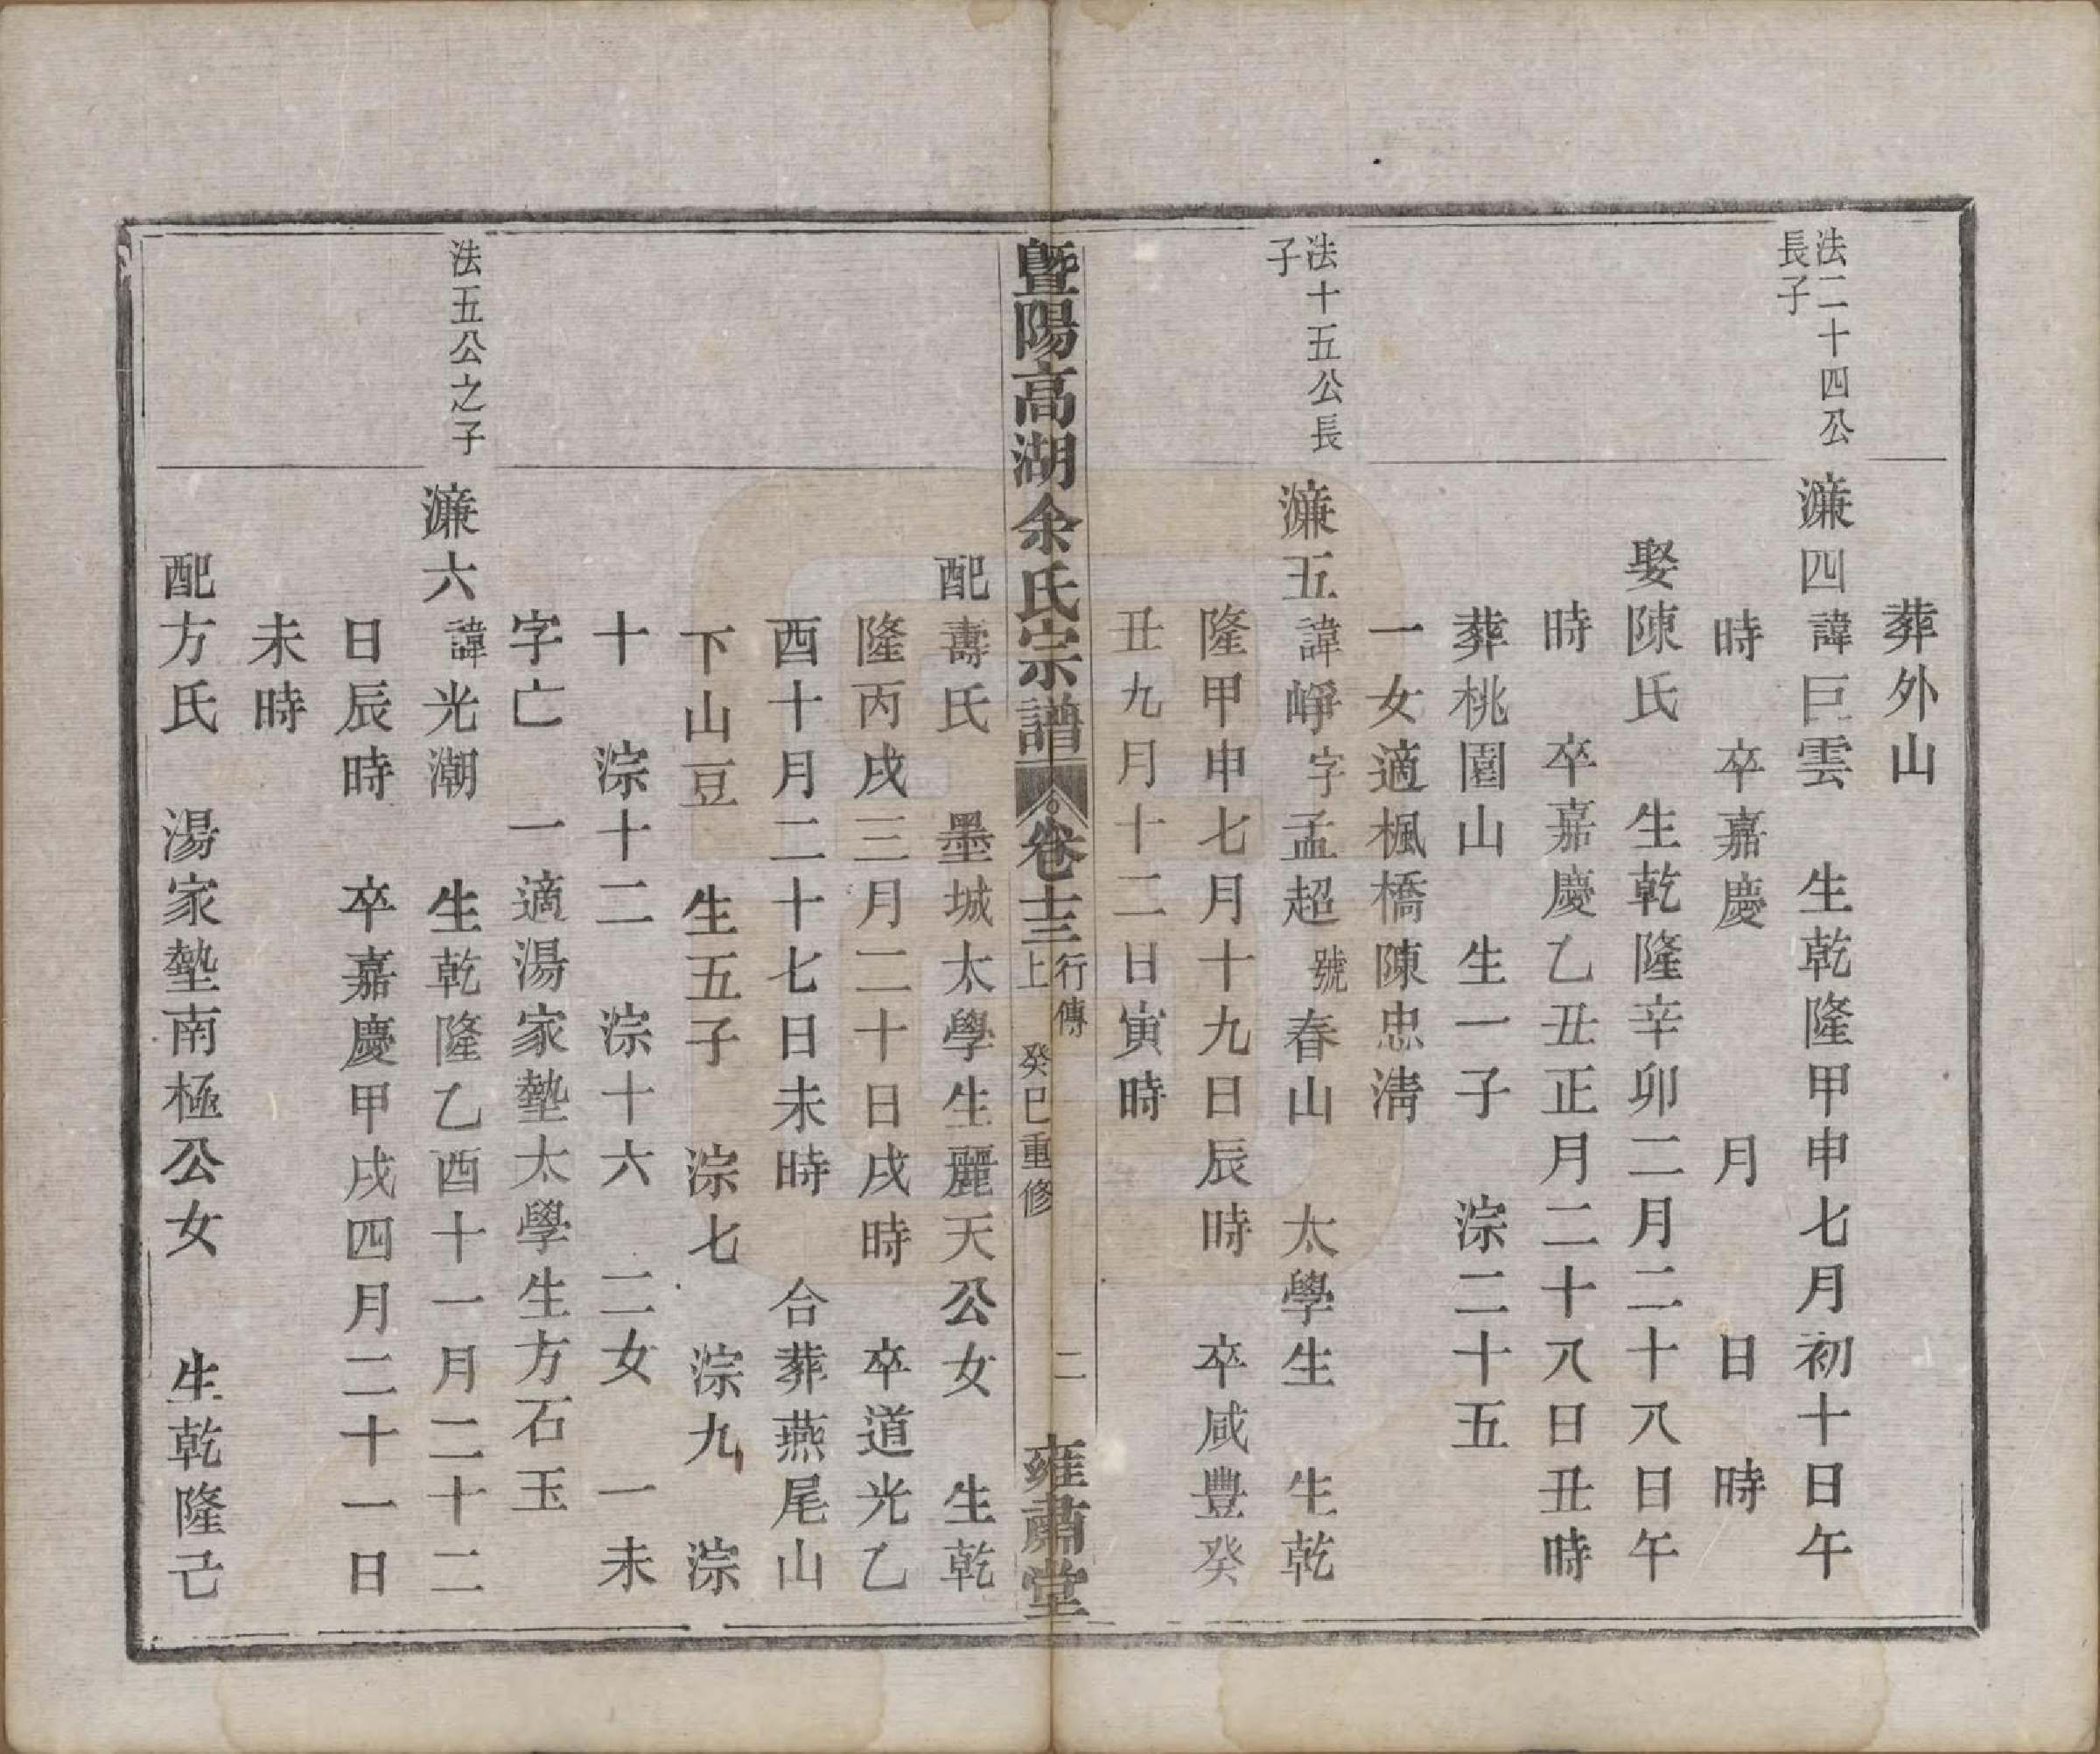 葬外山
法二十四公
長子
濂四諱巨雲　生乾隆甲申七月初十日午
時　卒嘉慶　　月　　日　時
娶陳氏　生乾隆辛卯二月二十八日午
時　卒嘉慶乙丑正月二十八日丑時
葬桃園山　生一子　淙二十五
一女適楓橋陳忠淸
法十五公長
子
濂五諱崢字孟超號春山　太學生　生乾
隆甲申七月十九日辰時　卒咸豐癸
丑九月十二日寅時
暨陽高湖余氏宗譜　卷十三上　行傳　癸巳重修　二　雍肅堂
配壽氏　墨城太學生麗天公女　生乾
隆丙戌三月二十日戌時　卒道光乙
酉十月二十七日未時　合葬燕尾山
下山豆　生五子　淙七　淙九　淙
十　淙十二　淙十六　二女　一未
字亡　一適湯家墊太學生方石玉
法五公之子
濂六諱光潮　生乾隆乙酉十一月二十二
日辰時　卒嘉慶甲戌四月二十一日
未時
配方氏　湯家墊南極公女　生乾隆己